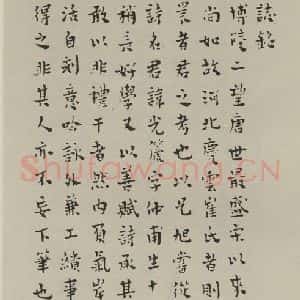 誌銘
博陵二望唐世最盛宋以來
尚如故河北唐雲崔氏者則
裳者君之考也以兄旭嘗從
詩名君諱光箴字仲甫生十
稍長好學又以善賦詩承其
敢以非禮干者然內負氣岸
活自刻意吟詠外兼工繢事
得之非其人亦不妄下筆也
Shufawang.CN